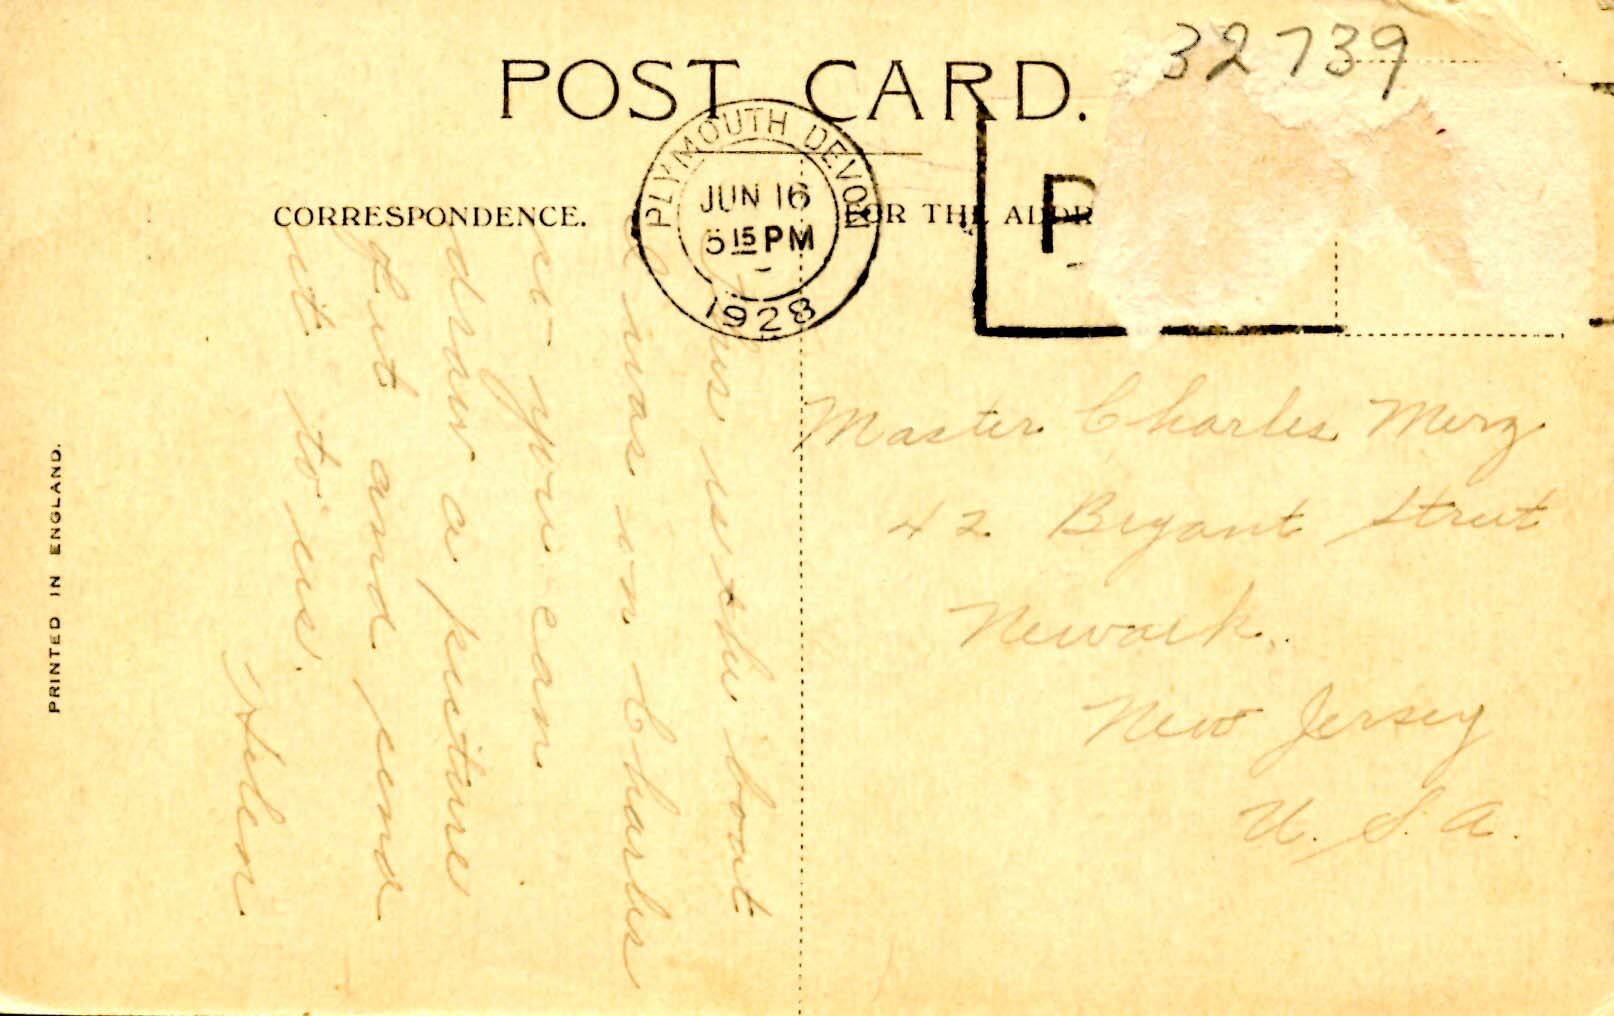 32739
POST CARD.
PLYMOUTH DEVON
JUN 16
5 15 PM
1928
P
CORRESPONDENCE.
FOR THE ADDR
This is the boat
I was on Charles
so you can
draw a picture
of it and send
it to us.
Helen
Master Charles Merz
42 Bryant Street
Newark.
New Jersey
U.S.A.
PRINTED IN ENGLAND.